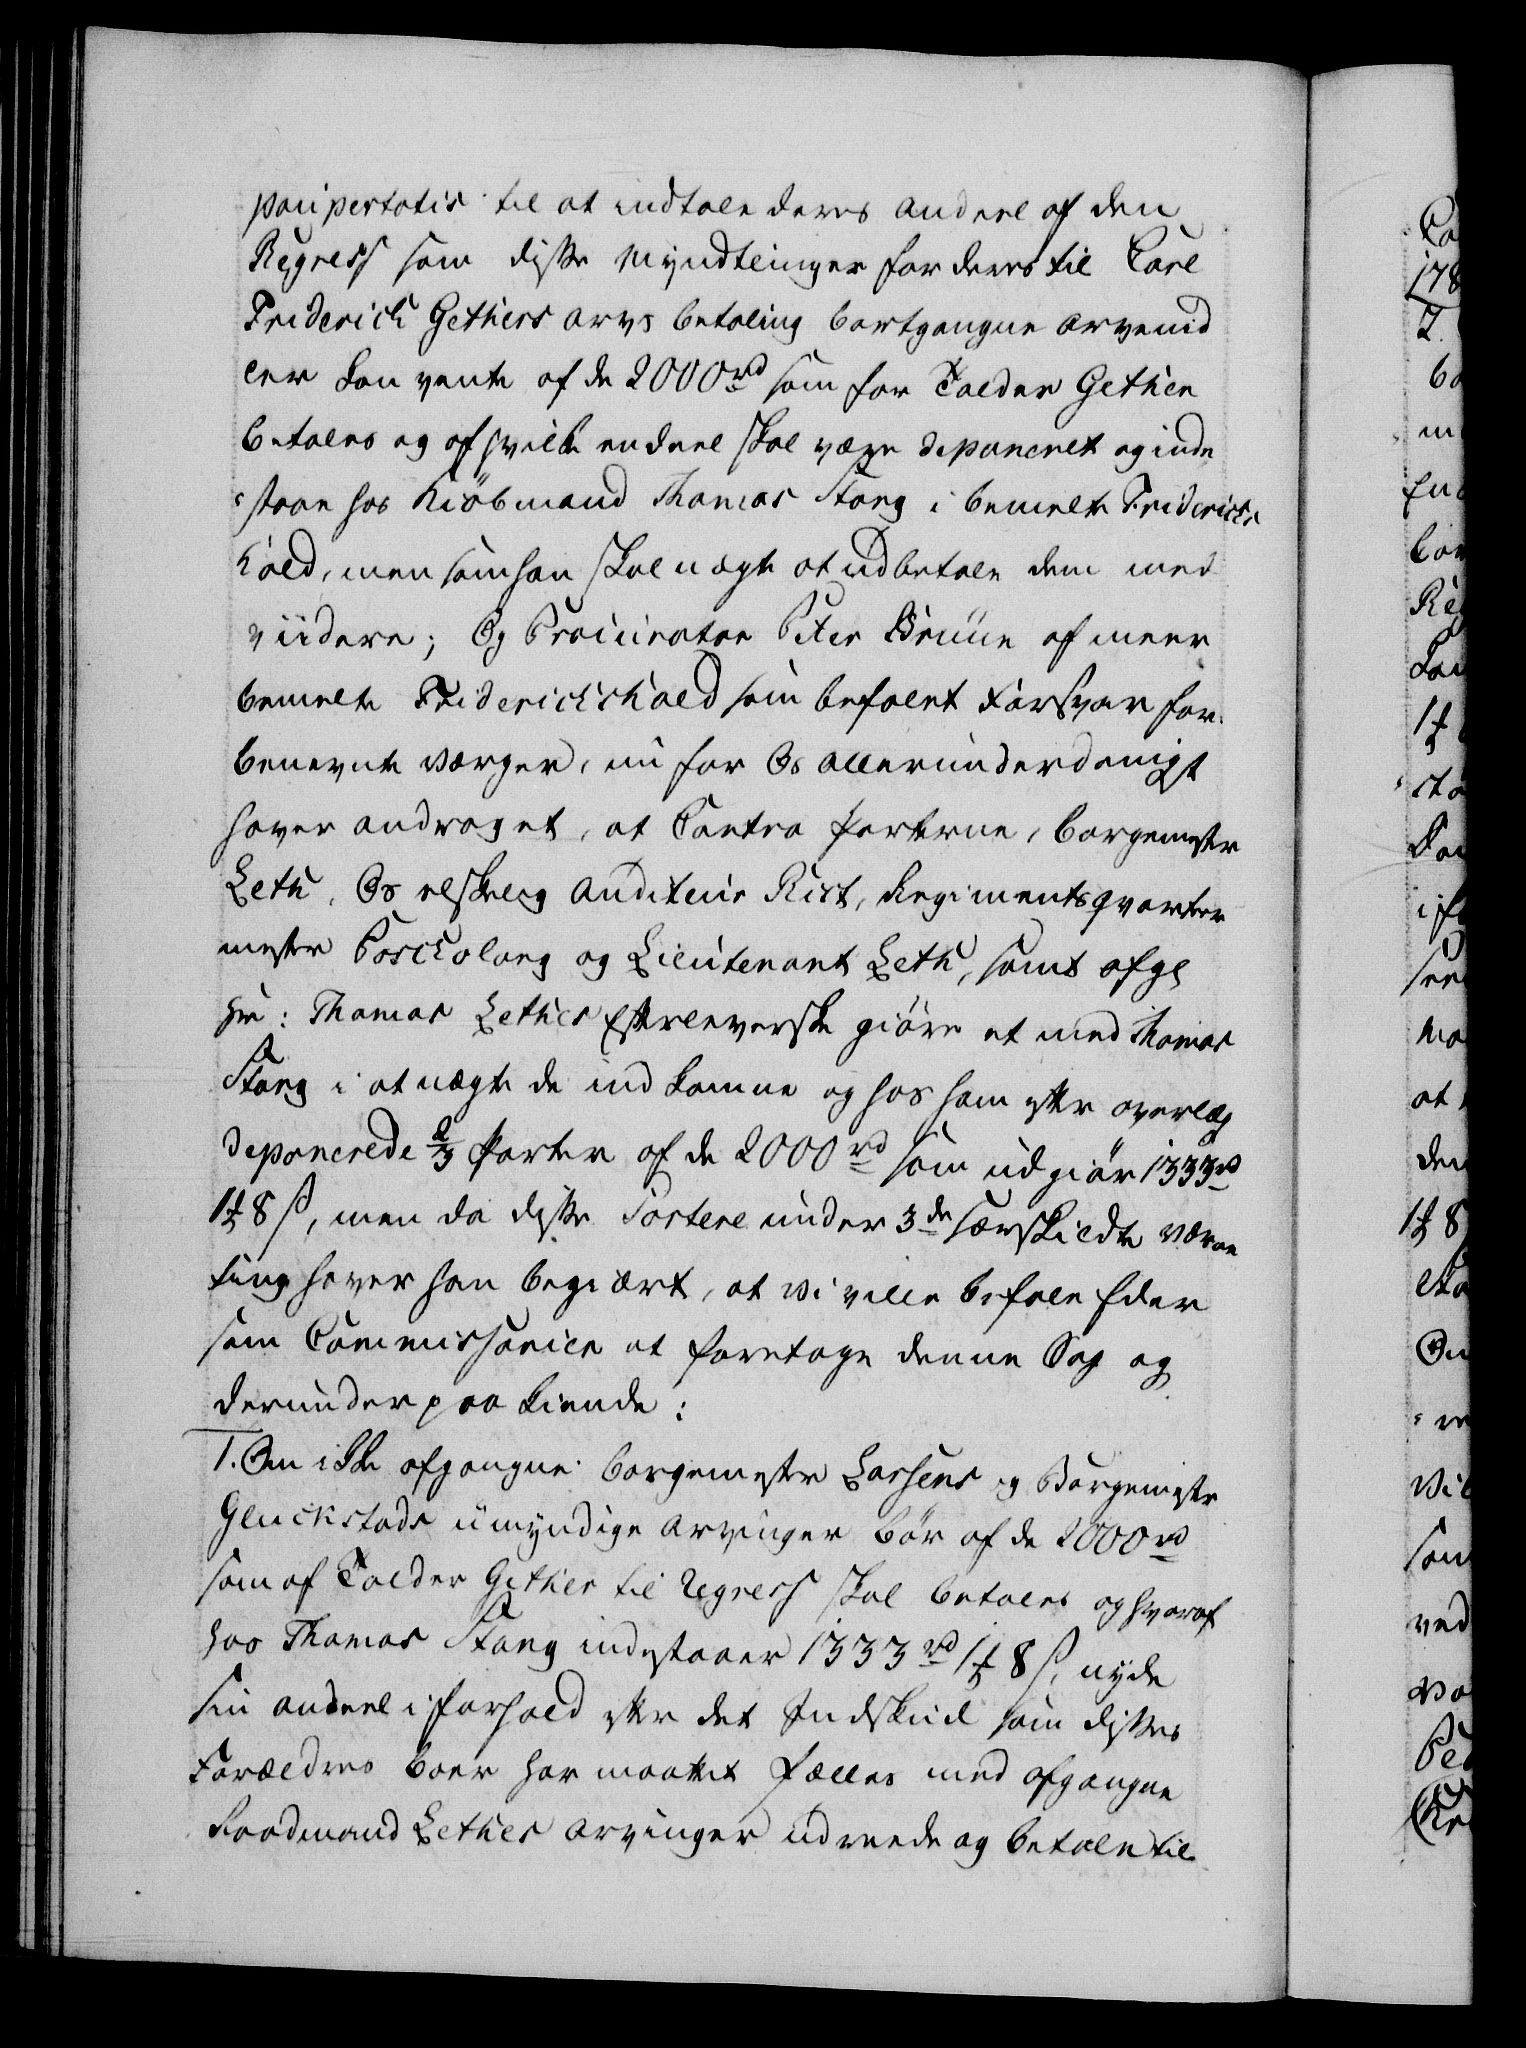 paupertatis til at indtale deres Andeel af den
Regress som disse Myndtlinger for deres til Carl
Friderich Gethers Arvs betaling bortgangne Arvemid
ler kan vente af de 2000 rd som for Tolder Gether
betales og af hvilke endeel skal være deponeret og inde
staae hos Kiöbmand Thomas Stang i bemelte Friderichs
hald, men som han skal nægte at udbetale dem med
viidere; Og Procurator Peter Brüun af meer
bemelte Friderichshald som befalet Forsvar for
benevnte Værger, nu for Os allerunderdanigst
haver andraget, at Contra Parterne, Borgemester
Leth, Os elskelig Auditeur Rist, Regimentsqvarteer
mester Coscholang og Lieutenant Leth, samt afg:
Hr: Thomas Lethes Efterleverske giöre et med Thomas
Stang i at nægte de ind komne og hos ham efter overlæg
deponerede 2/3 Parter af de 2000 rd som udgiör 1333 rd
1 ꝑ 8 s, men da disse Sortere under 3de særskildte Værne
ting haver han begiært, at Vi ville befale Eder
som Commissarier at foretage denne Sag og
derunder paa kiende:
1. Om ikke afgangne Borgemester Larsens og Borgemester
Gluckstads umyndige Arvinger bör af de 2000 rd
som af Tolder Gether til Regress skal betales og hvoraf
hos Thomas Stang indestaaer 1333 rd 1 ꝑ 8 s, nyde
sin Andeel i Forhold efter det Indskud som disses
Forældres Boer har maattet fælles med afgangne
Raadmand Lethes Arvinger udreede og betale til